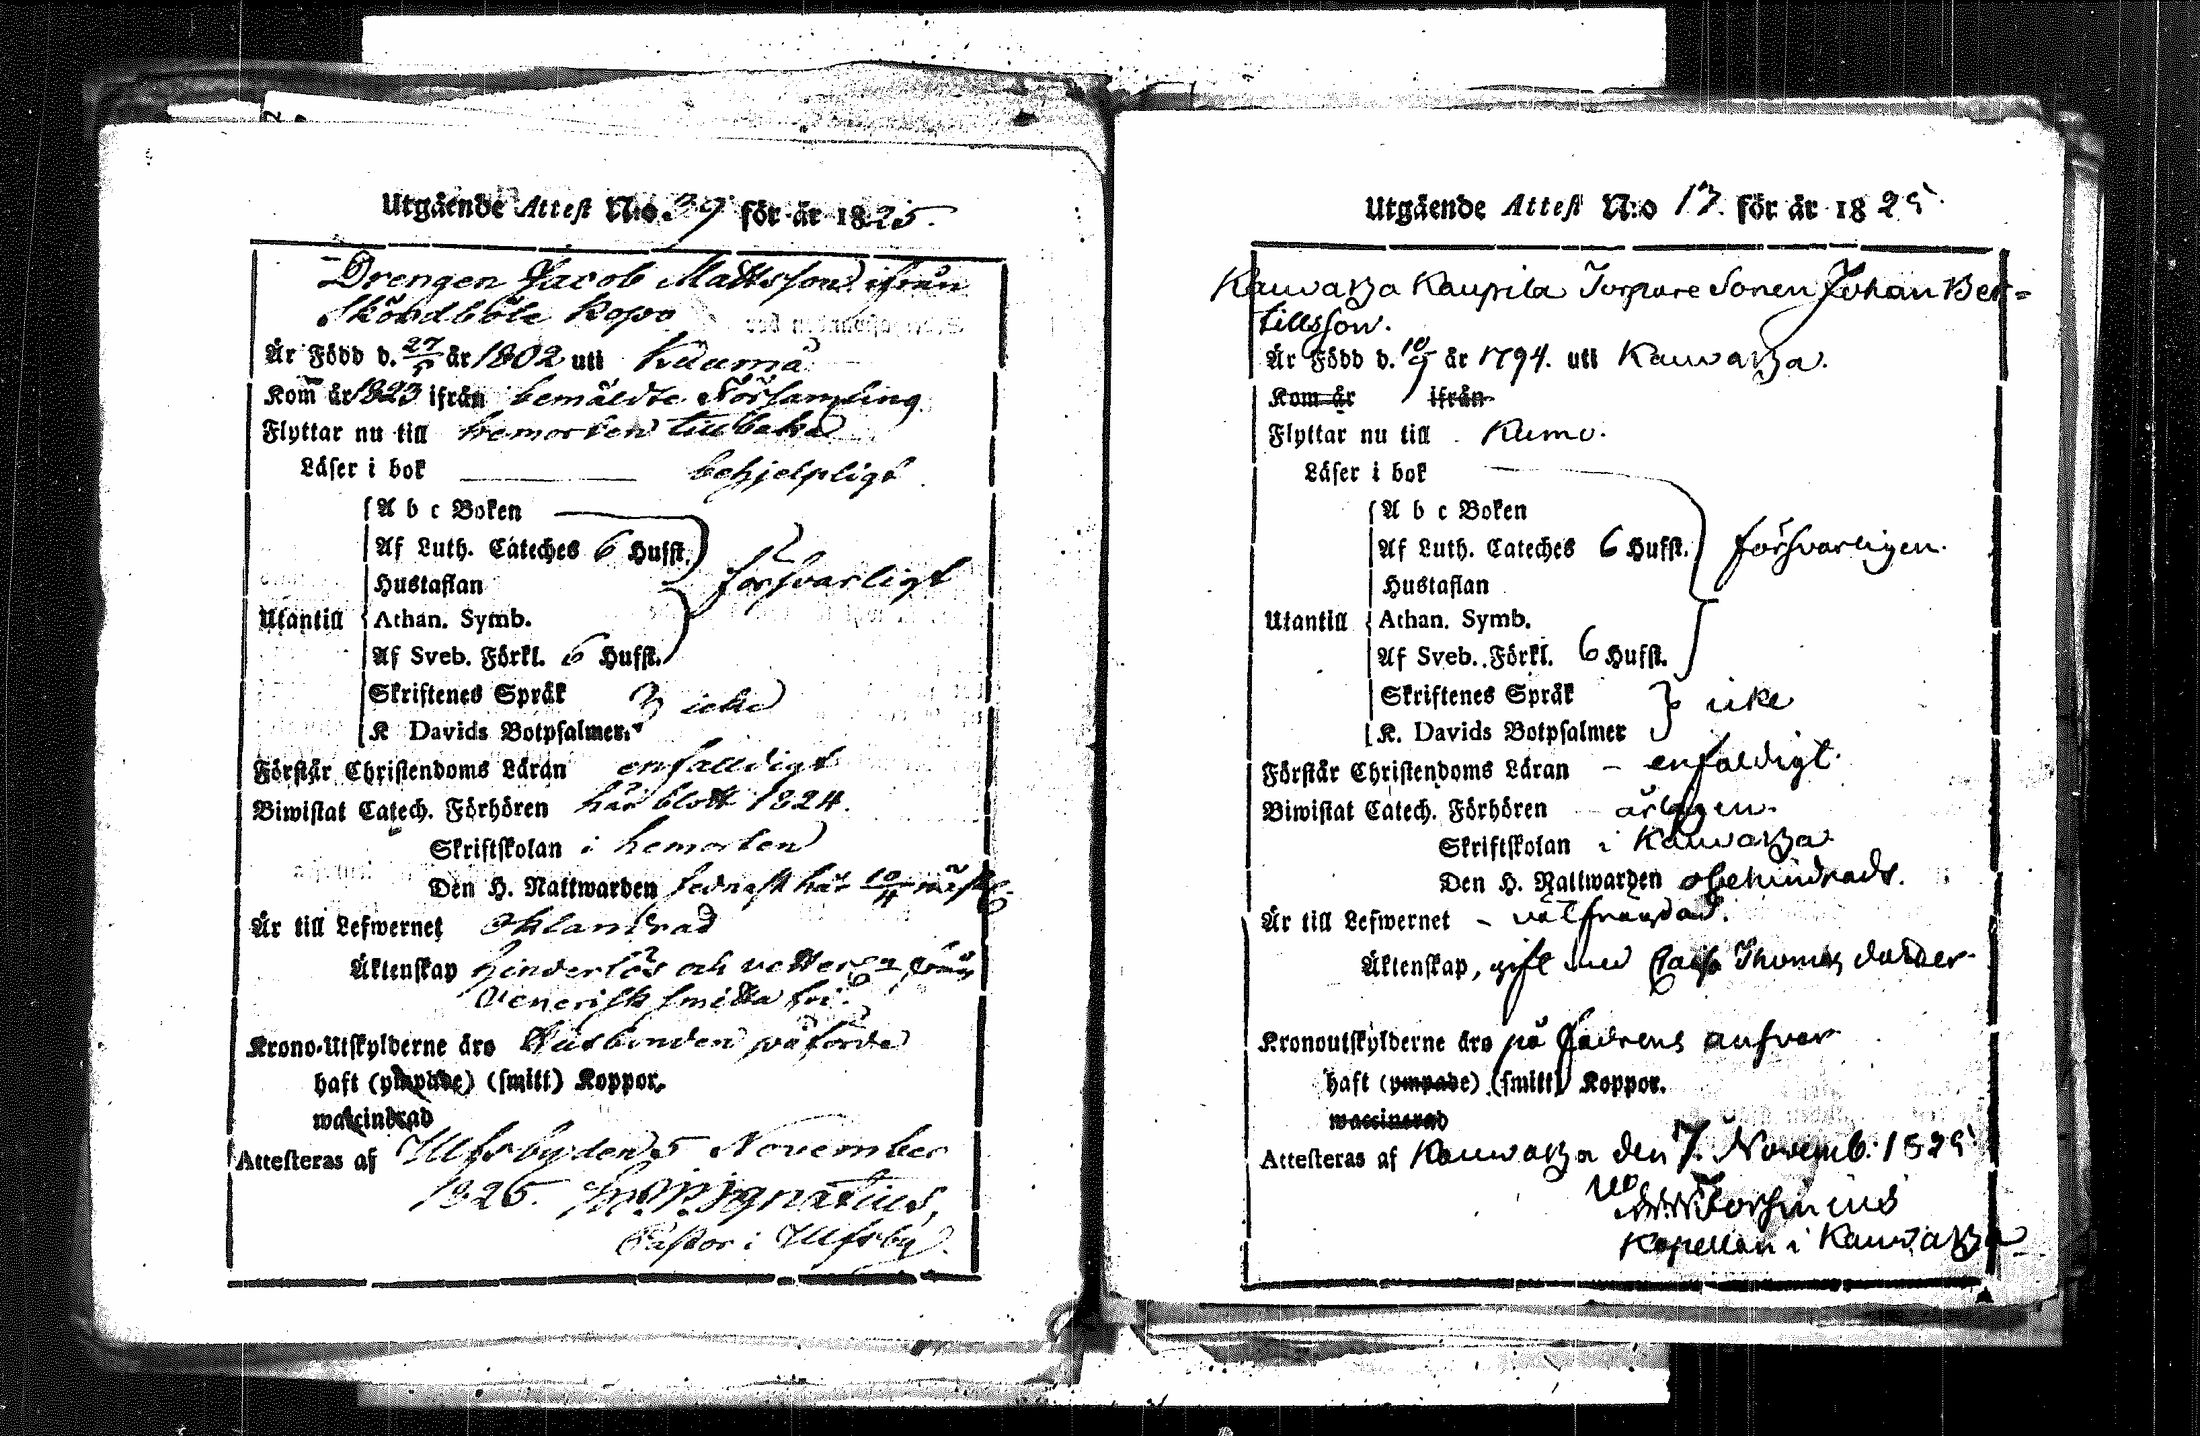 Utgående Attest N:o 39 för år 1825.
Drengen Jacob Mattsson ifrån
Sköldböle
Är Född d. 27/5 år 1802 uti Kuumo
Kom år 1823 ifrån bemäldte Församling
Flyttar nu till hemorten tillbaka
Läser i bok behjelpligt
A b c Boken
Af Luth. Cateches 6 Hufst.
Hustaflan försvarligt
Utantill Athan. Symb.
Af Sveb. Förkl. 6 Hufst.
Skriftenes Språk icke
K Davids Botpsalmer
Förstår Christendoms Läran enfaldigt
Biwistat Catech. Förhören här blott 1824.
Skriftskolan i hemorten
Den H. Nattwarden sednast här 10/4
Är till Lefwernet oklandrad
Äktenskap hinderlös och från
Venerisk smitta fri.
Krono-Utskylderne äro Husbonden påförde
haft (ympade) (smitt) Koppor.
waccinerad
Attesteras af Ulfsby den 5 November
1825. Ignatius,
Pastor i Ulfsby.
Utgående Attest N:o 17. för år 1825.
Kauvatza Kaupila Torpare Sonen Johan Ber-
tillsson.
Är Född d. 10/9 år 1794. uti Kauvatza.
Kom år ifrån
Flyttar nu till Kumo.
Läser i bok
A b c Boken
Af Luth. Cateches 6 Hufst. försvarligen.
Hustaflan
Utantill Athan. Symb.
Af Sveb. Förkl. 6 Hufst.
Skriftenes Språk icke
K. Davids Botpsalmer
Förstår Christendoms Läran - enfaldigt.
Biwistat Catech. Förhören årligen.
Skriftskolan i Kauvatza
Den H. Nattwarden obehindrads.
Är till Lefwernet - välfräydad.
Äktenskap, gift med Thomas dotter
Kronoutskylderne äro på Fadrens ansvar
haft (ympade) (smitt) Koppor.
waccinerad
Attesteras af Kauvatza den 7. Novemb. 1825
Forsinius
Kapellan i Kauvatza